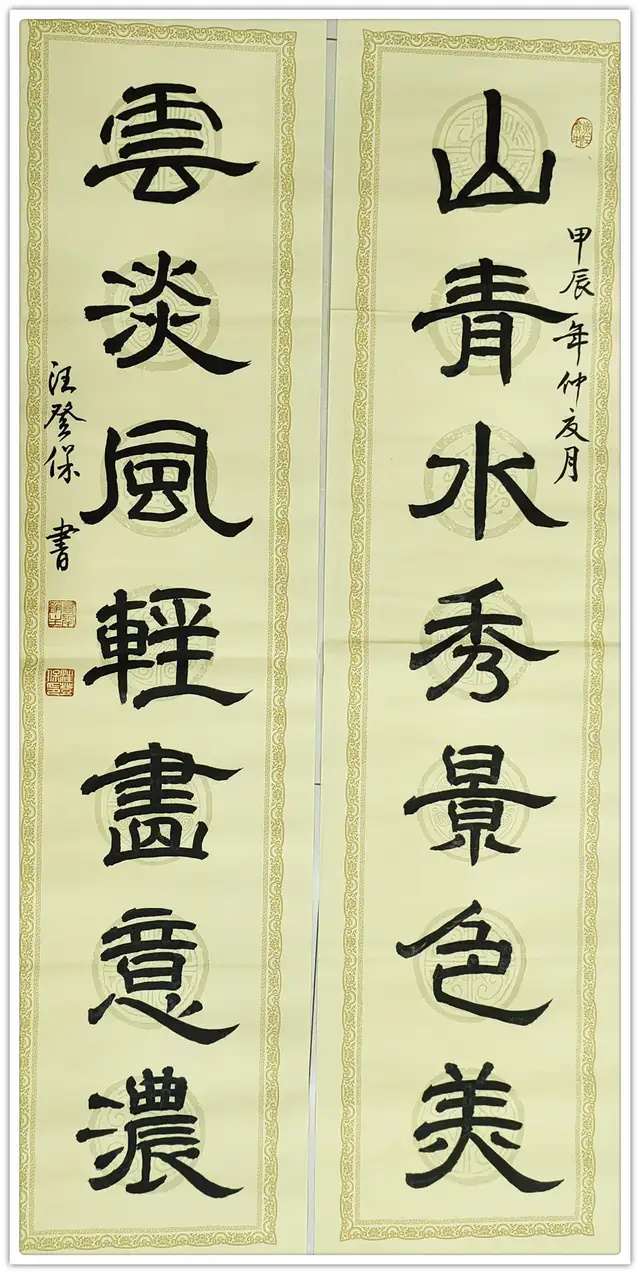 山青水秀景色美
甲辰年仲夏月
雲淡風輕畫意濃
汪登保 書